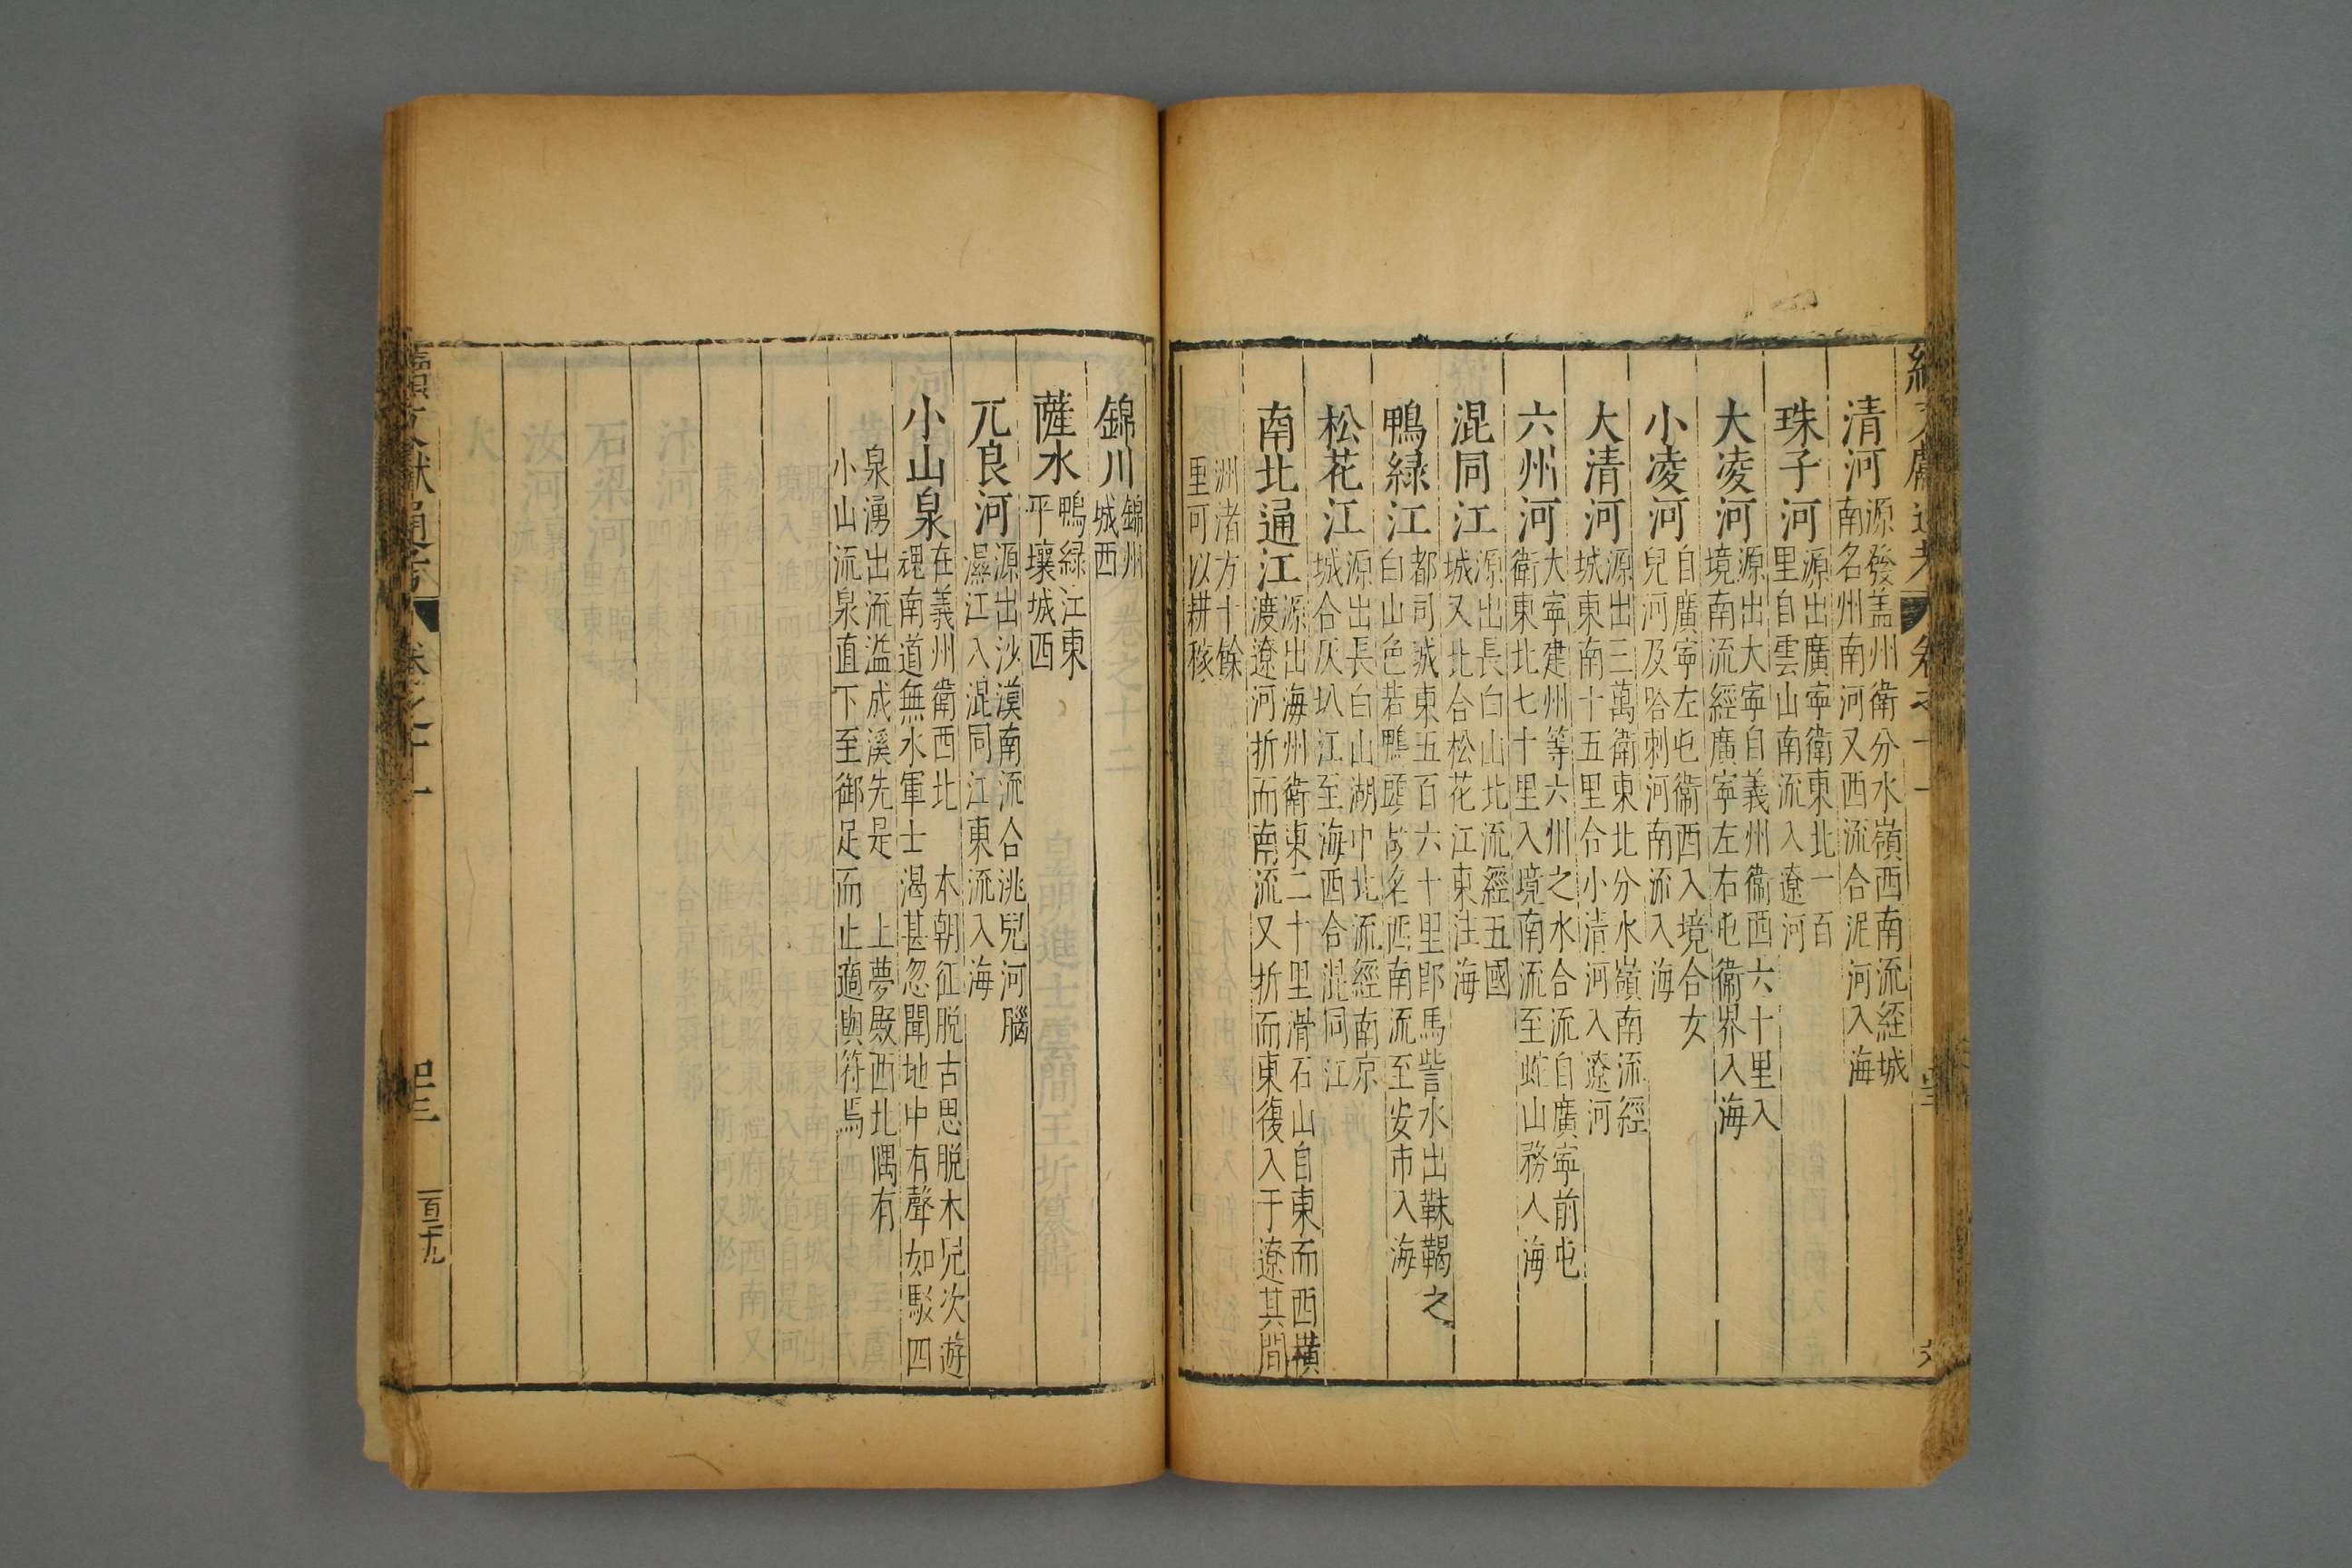 清河源發蓋州衛分水嶺西南流經城
南名州南河又西流合泥河入海
珠子河源出廣寧衛東北一百
里自雲山南流入遼河
大凌河源出大寧自義州衛西六十里入
境南流經廣寧左右屯衛界入海
小凌河自廣寧左屯衛西入境合女
兒河及哈刺河南流入海
大清河源出三萬衛東北分水嶺南流經
城東南十五里合小清河入遼河
六州河大寧建州等六州之水合流自廣寧前屯
衛東北七十里入境南流至蛇山務入海
混同江源出長白山北流經五國
城又北合松花江東注海
鴨緑江都司城東五百六十里即馬訾水出靺鞨之
白山色若鴨頭故名西南流至安市入海
松花江源出長白山湖中北流經南京
城合灰扒江至海西合混同江
南北通江源出海州衛東二十里滑石山自東而西橫
渡遼河折而南流又折而東復入于遼其間
洲渚方十餘
里可以耕稼
錦川錦州
城西
薩水鴨緑江東
平壤城西
兀良河源出沙漠南流合洮兒河腦
濕江入混同江東流入海
小山泉在義州衛西北 本朝征脫古思脫木兒次遊
魂南道無水軍士渴甚忽聞地中有聲如駁四
泉湧出流溢成溪先是 上夢殿西北隅有
小山流泉直下至御足而止適與符焉
續文獻通考 卷之十一
一百三十九